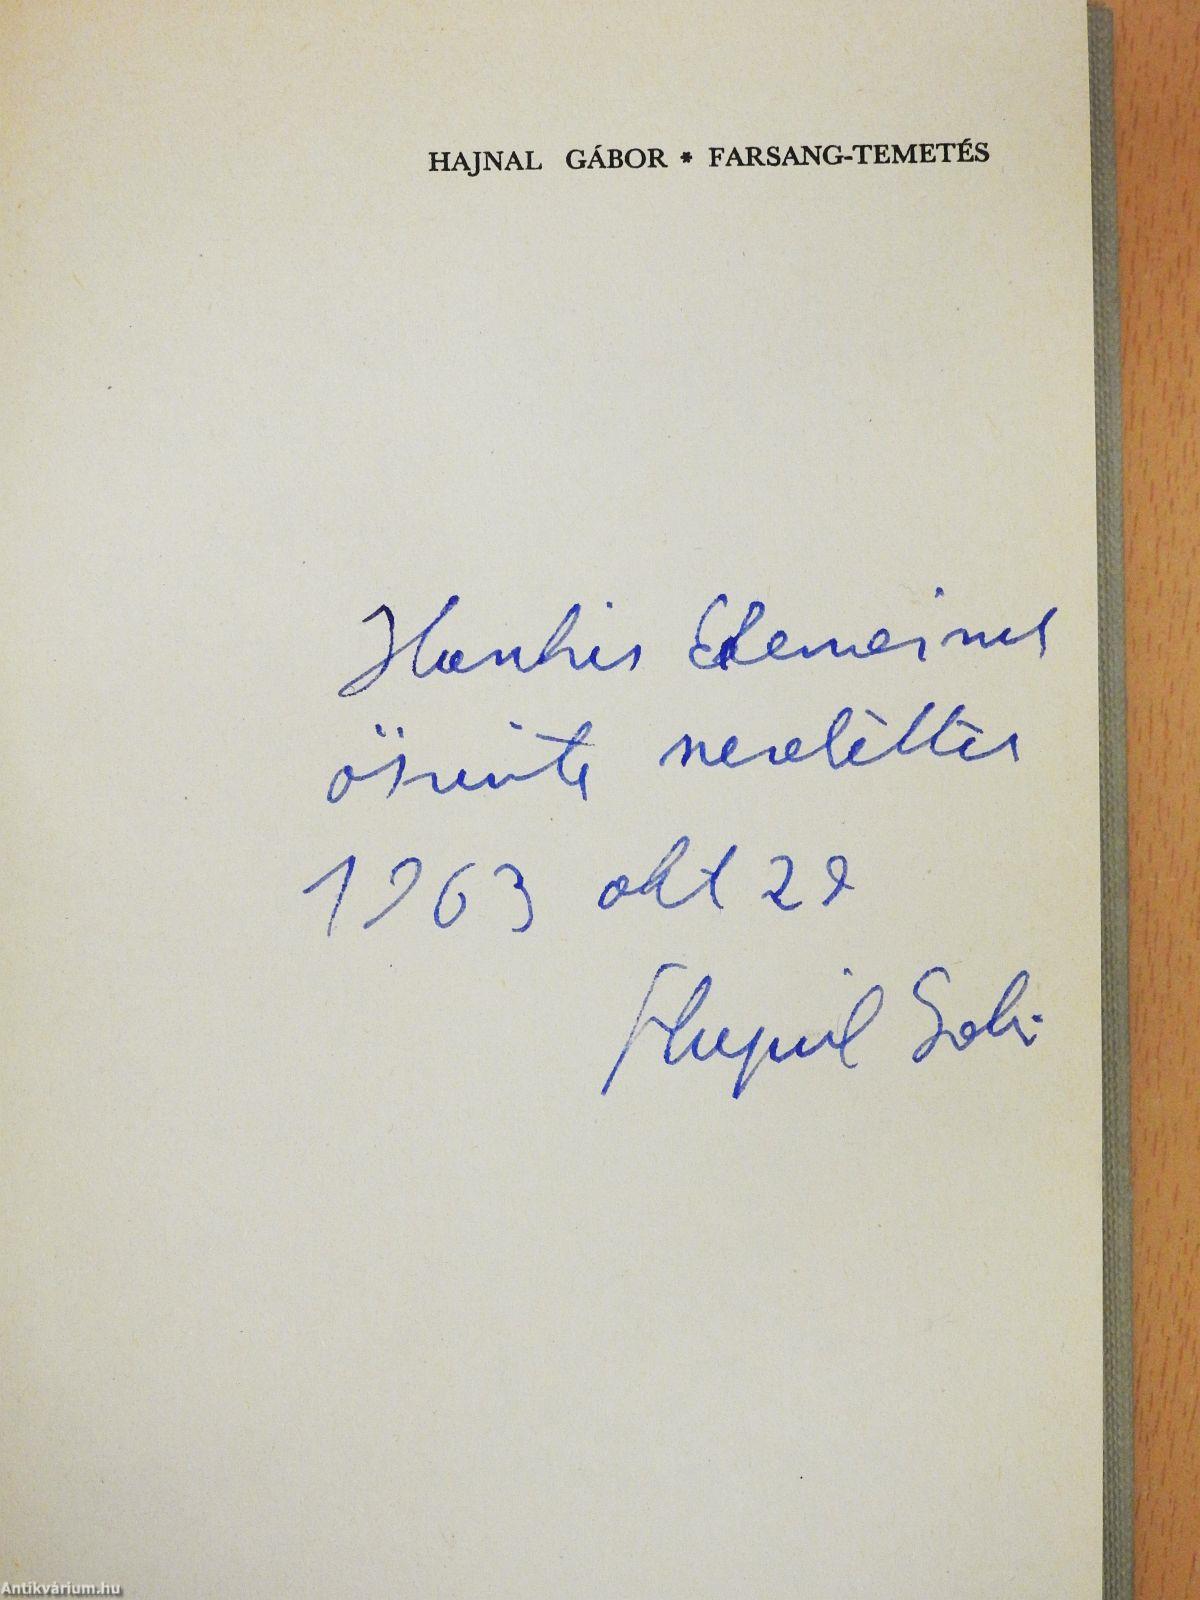 HAJNAL GÁBOR * FARSANG-TEMETÉS
Hankis Elemérnek
őszinte szeretettel
1963 okt 29
Hajnal Gábor
Antikvárium.hu